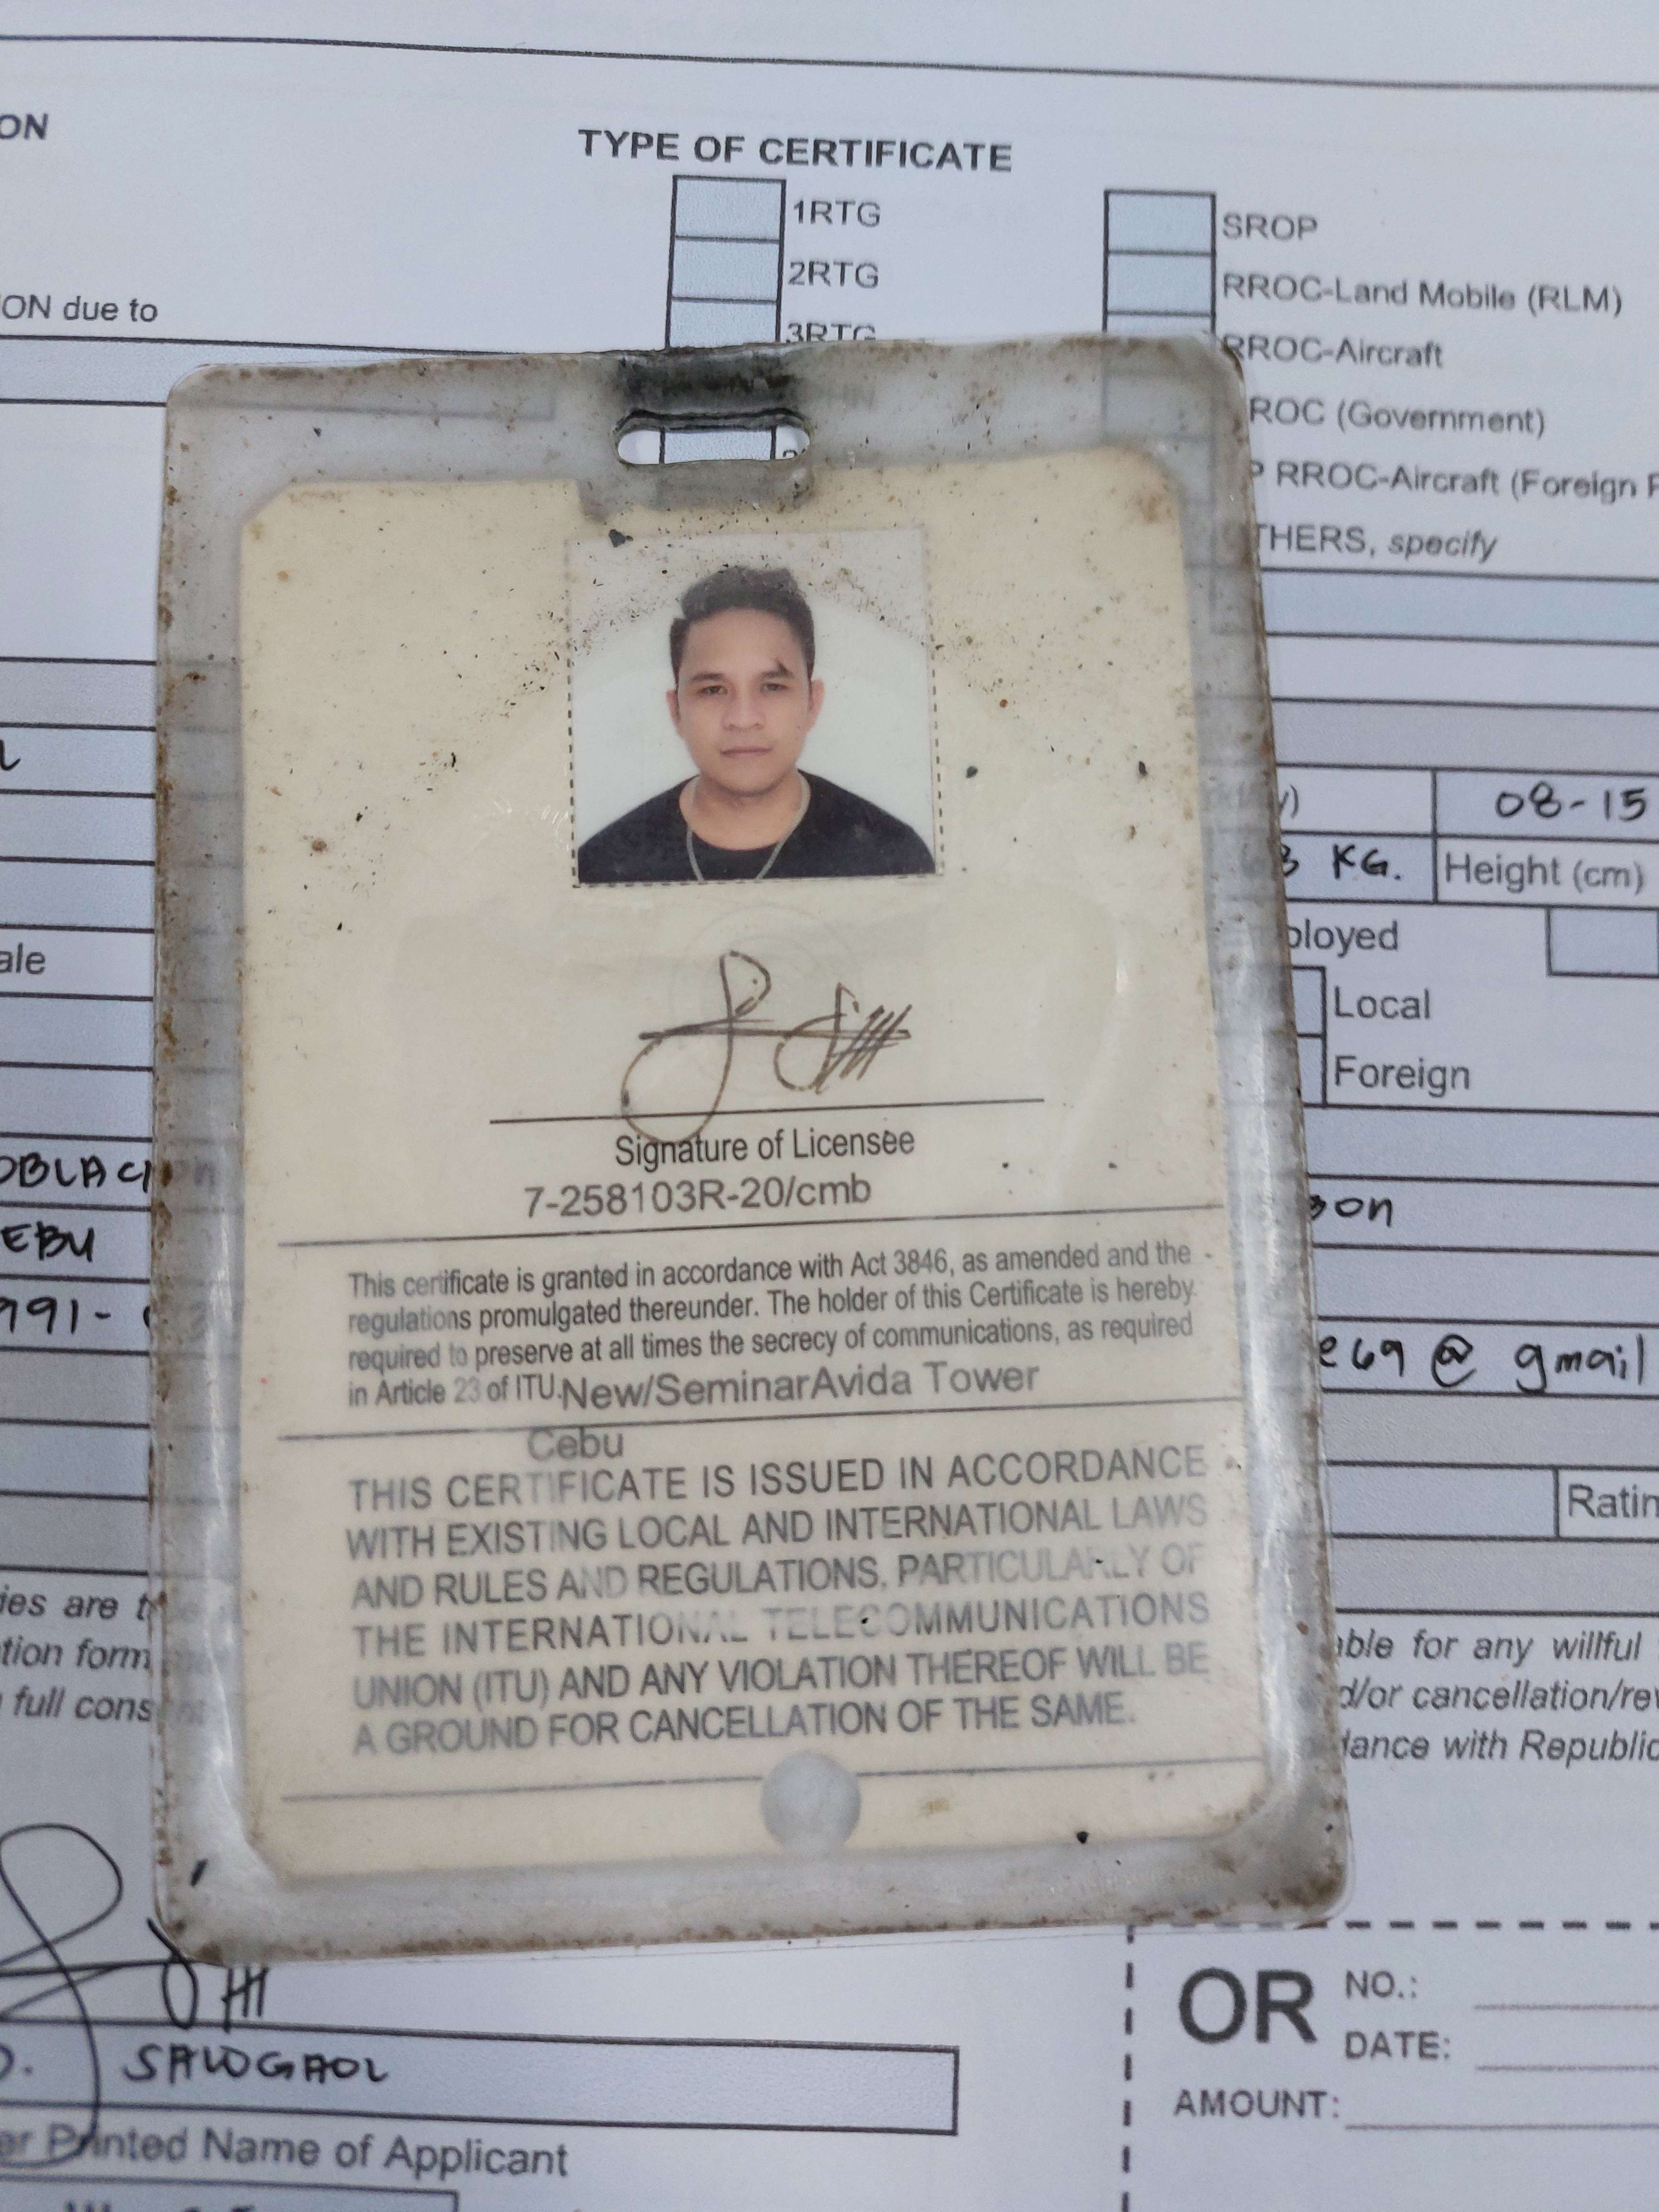 ON
TYPE OF CERTIFICATE
1RTG
2RTG
3RTG
SROP
RROC-Land Mobile (RLM)
RROC-Aircraft
ROC (Government)
P RROC-Aircraft (Foreign
THERS, specify
ION due to
08-15
KG.
Height (cm)
ployed
Local
Foreign
ale
OBLACI
EBU
991-
on
e69 @ gmail
Ratin
Signature of Licensee
7-258103R-20/cmb
This certificate is granted in accordance with Act 3846, as amended and the
regulations promulgated thereunder. The holder of this Certificate is hereby
required to preserve at all times the secrecy of communications, as required
in Article 23 of ITU. New/SeminarAvida Tower
Cebu
THIS CERTIFICATE IS ISSUED IN ACCORDANCE
WITH EXISTING LOCAL AND INTERNATIONAL LAWS
AND RULES AND REGULATIONS, PARTICULARLY OF
THE INTERNATIONAL TELECOMMUNICATIONS
UNION (ITU) AND ANY VIOLATION THEREOF WILL BE
A GROUND FOR CANCELLATION OF THE SAME.
ies are t
tion form
full cons
able for any willful
d/or cancellation/rev
dance with Republic
OR
NO.:
DATE:
AMOUNT:
D. SALOGAOL
er Printed Name of Applicant